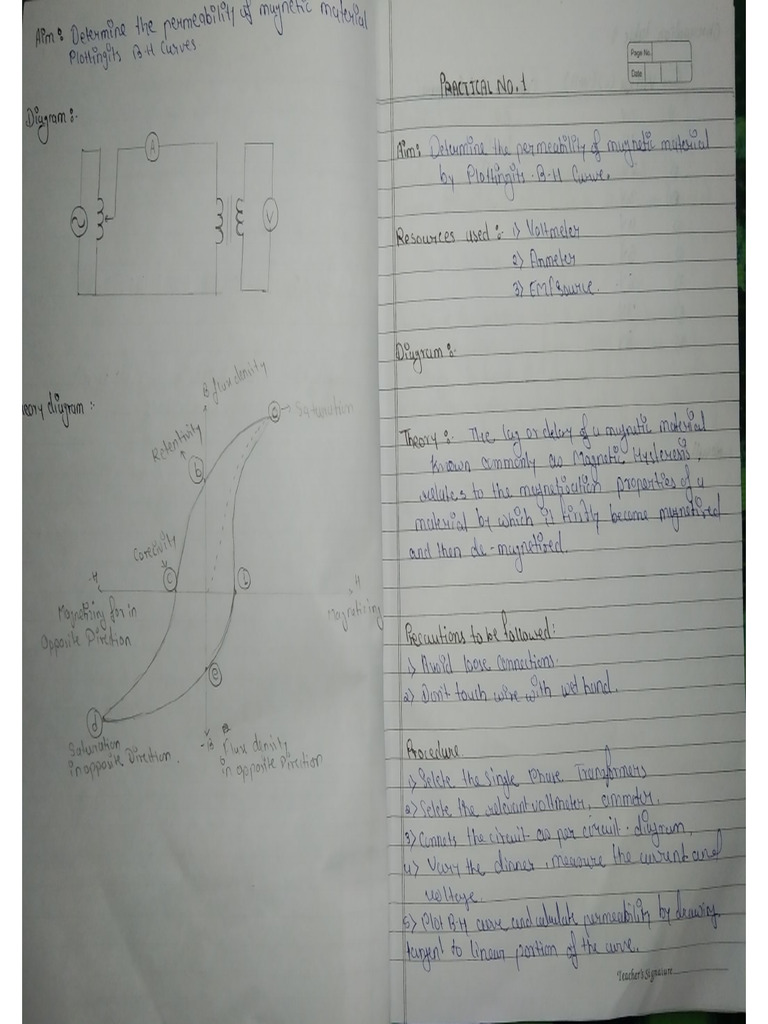 Aim: Determine the permeability of magnetic material
Plottingits B-H Curves
Diagram :-
A
V
eory diagram :-
B flux density
Saturation
Retentivity
b
Corecivity
c
h
-H
H
Magnetizing for in
opposite Direction
Magnetizing
e
d
Saturation
in opposite Direction.
-B
Flux density
in opposite Direction
Page No.
Date
PRACTICAL NO. 1
Aim: Determine the permeability of magnetic material
by Plottingits B-H Curve.
Resources used :- 1) Voltmeter
2) Ammeter
3) EMF source.
Diagram :-
Theory :- The lag or delay of a magnetic material
known commonly as Magnetic Hysteresis,
relates to the magnetisation properties of a
material by which it firstly become magnetized
and then de-magnetized.
Precautions to be followed:
1) Avoid loose connections.
2) Don't touch wire with wet hand.
Procedure
1) Selete the single Phase Transformers
2) Selete the relevant voltmeter, ammeter.
3) Connets the circuit as per circuit diagram.
4) Vary the dinner, measure the current and
voltage
5) Plot B-H curve and calculate permeability by drawing
tangent to linear portion of the curve.
Teacher's Signature